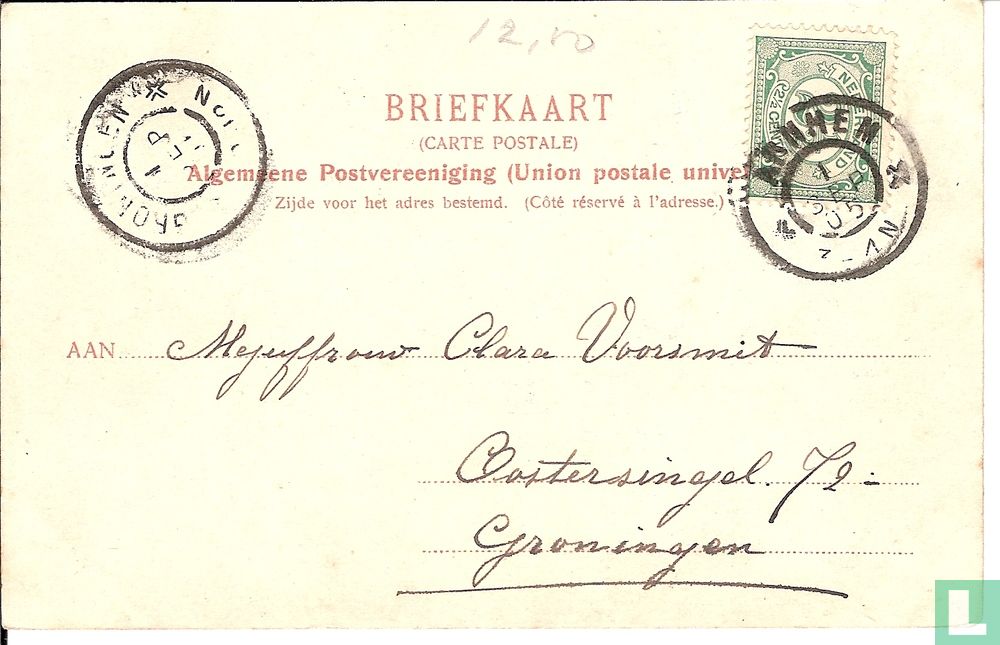 12,50
BRIEFKAART
(CARTE POSTALE)
Algemeene Postvereeniging (Union postale unive
Zijde voor het adres bestemd. (Côté réservé à l'adresse.)
GRONINGEN
ARNHEM
3-4N
05
2½ CENT
AAN Mejuffrouw Clara Voorsmit
Oostersingel. 72-
Groningen
L